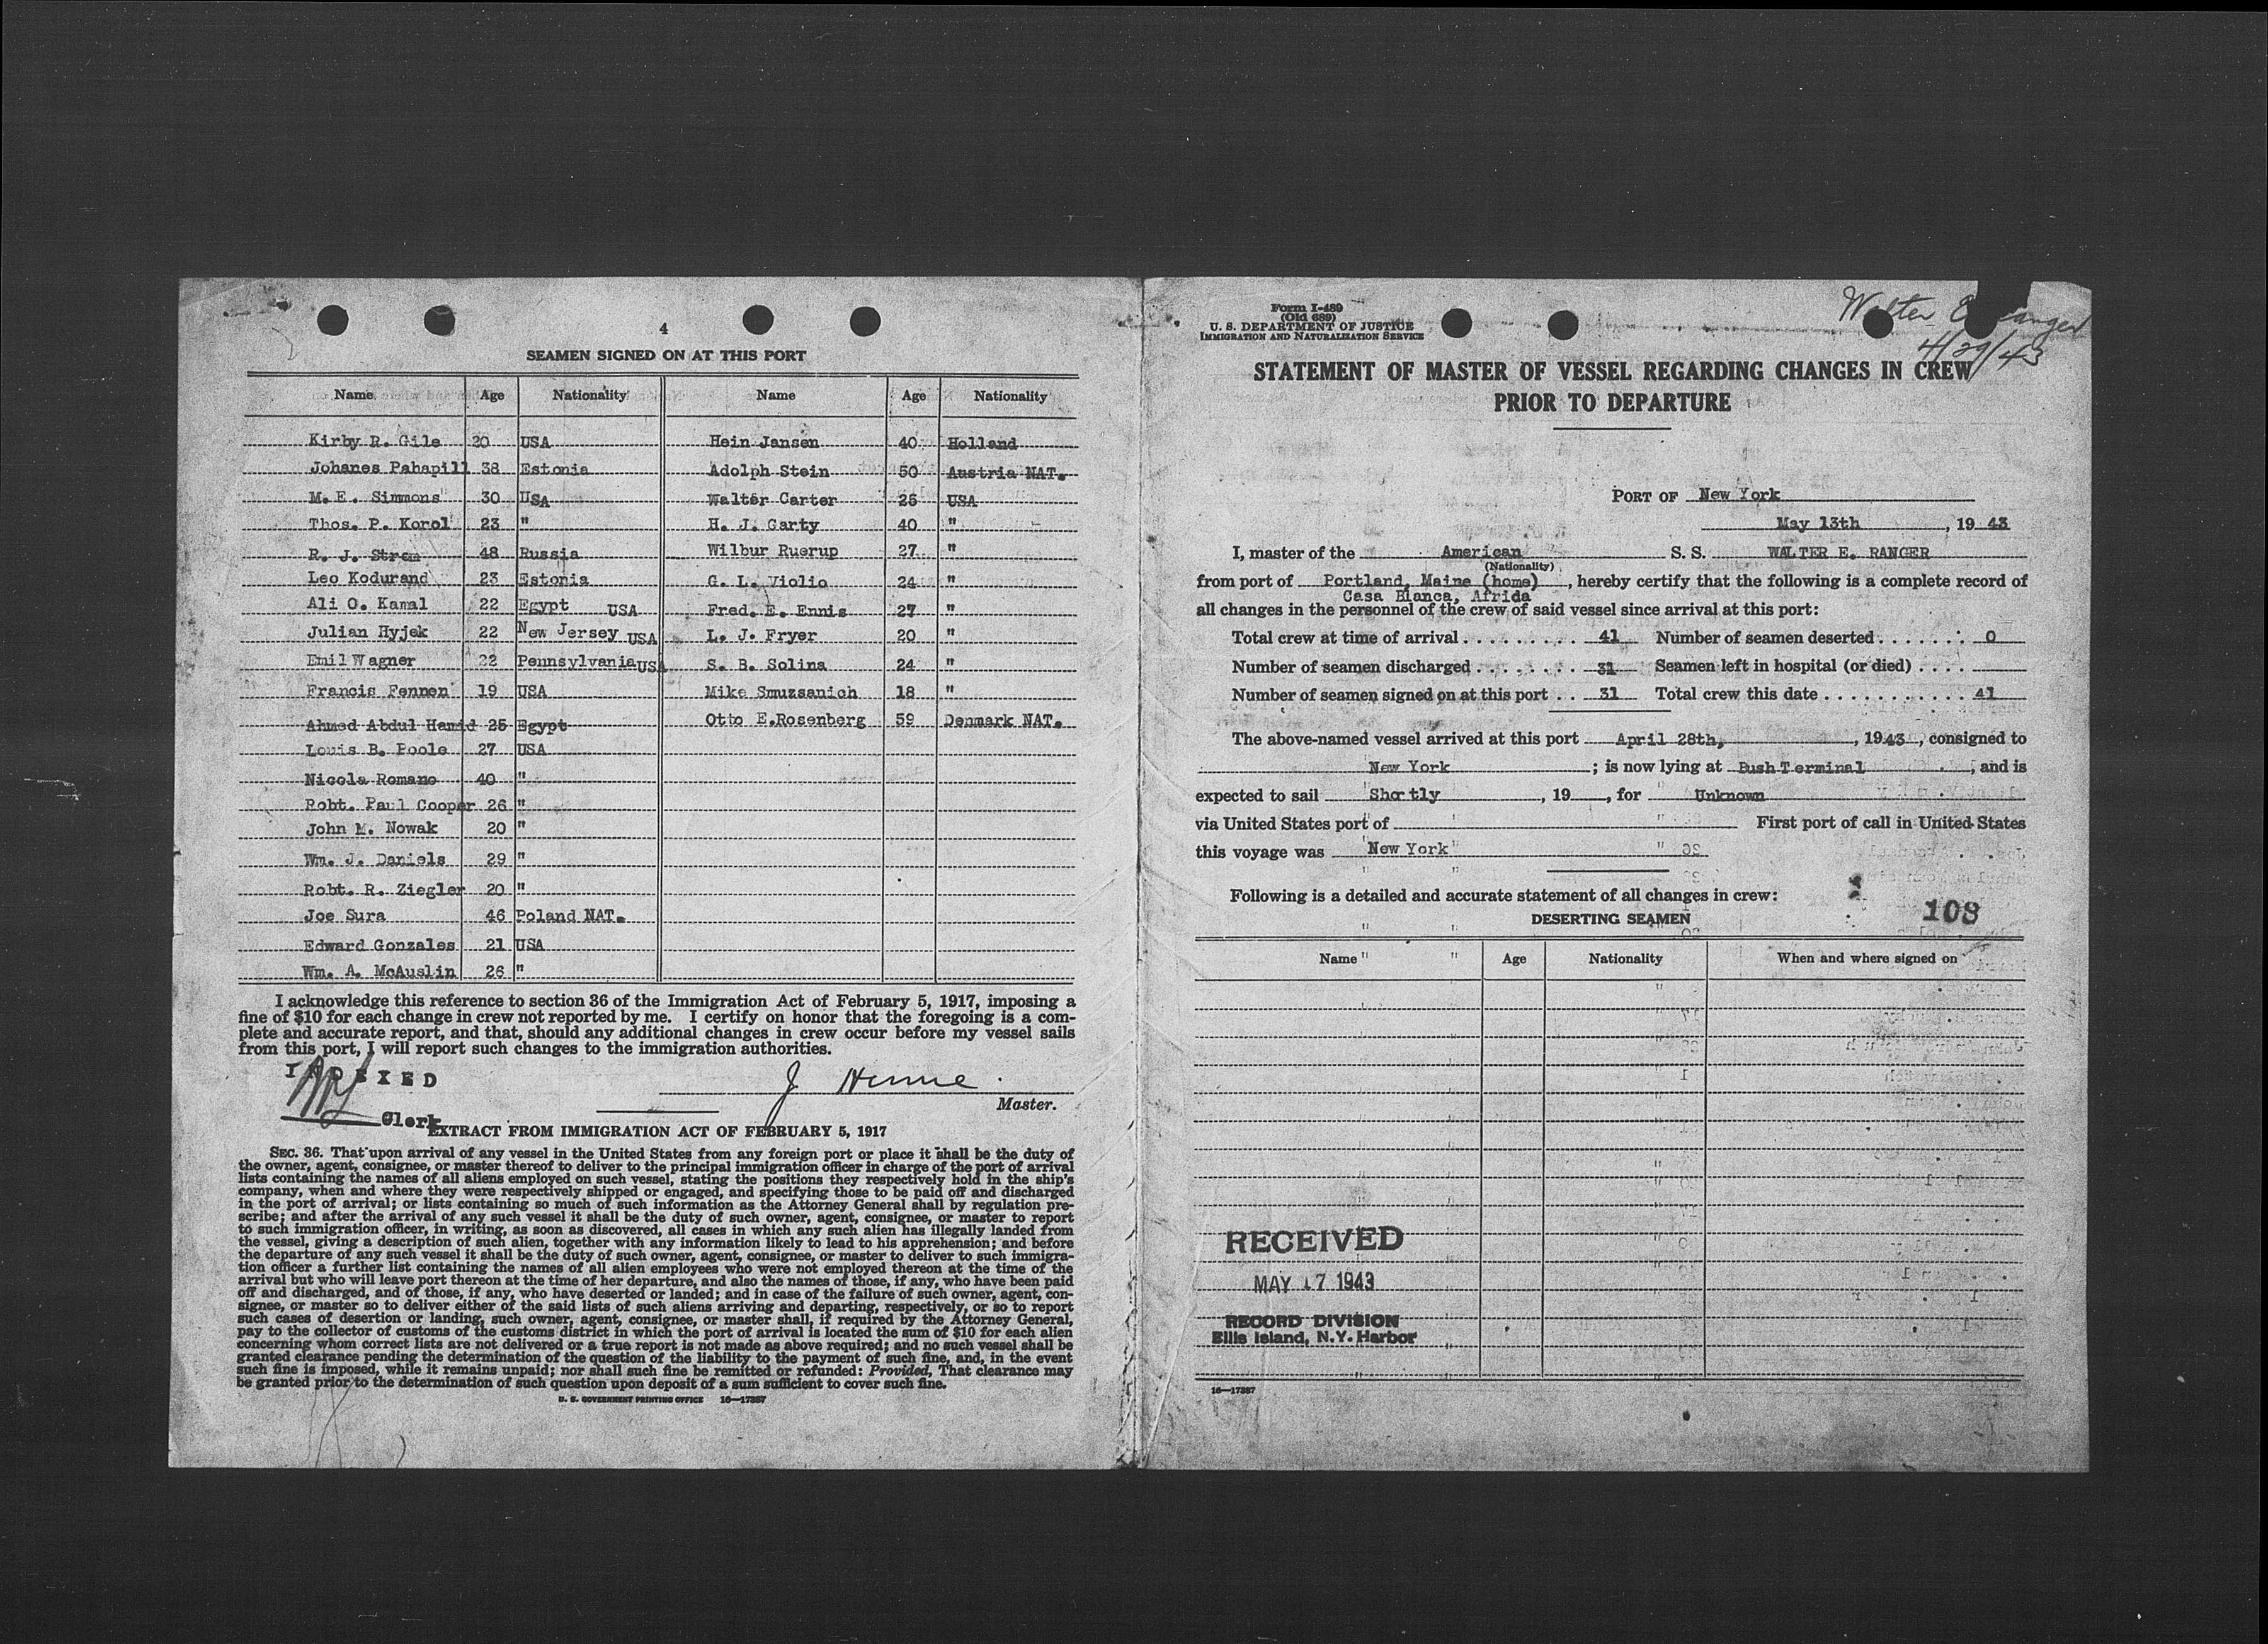 4
SEAMEN SIGNED ON AT THIS PORT
Name Age Nationality Name Age Nationality
Kirby R. Gile 20 USA Hein Jansen 40 Holland
Johanes Pahapill 38 Estonia Adolph Stein 50 Austria NAT.
M. E. Simmons 30 USA Walter Carter 25 USA
Thos. P. Korol 23 " H. J. Garty 40 "
R. J. Strom 48 Russia Wilbur Ruerup 27 "
Leo Kodurand 23 Estonia G. L. Violio 24 "
Ali O. Kamal 22 Egypt USA Fred. E. Ennis 27 "
Julian Hyjek 22 New Jersey USA L. J. Fryer 20 "
Emil Wagner 22 Pennsylvania USA S. B. Solina 24 "
Francis Fennen 19 USA Mike Smuzsanich 18 "
Ahmed Abdul Hamid 25 Egypt Otto E.Rosenberg 59 Denmark NAT.
Louis B. Poole 27 USA
Nicola Romano 40 "
Robt. Paul Cooper 26 "
John M. Nowak 20 "
Wm. J. Daniels 29 "
Robt. R. Ziegler 20 "
Joe Sura 46 Poland NAT.
Edward Gonzales 21 USA
Wm. A. McAuslin 26 "
I acknowledge this reference to section 36 of the Immigration Act of February 5, 1917, imposing a
fine of $10 for each change in crew not reported by me. I certify on honor that the foregoing is a com-
plete and accurate report, and that, should any additional changes in crew occur before my vessel sails
from this port, I will report such changes to the immigration authorities.
INDEXED
J Hinne
Master.
Clerk
EXTRACT FROM IMMIGRATION ACT OF FEBRUARY 5, 1917
SEC. 36. That upon arrival of any vessel in the United States from any foreign port or place it shall be the duty of
the owner, agent, consignee, or master thereof to deliver to the principal immigration officer in charge of the port of arrival
lists containing the names of all aliens employed on such vessel, stating the positions they respectively hold in the ship's
company, when and where they were respectively shipped or engaged, and specifying those to be paid off and discharged
in the port of arrival; or lists containing so much of such information as the Attorney General shall by regulation pre-
scribe; and after the arrival of any such vessel it shall be the duty of such owner, agent, consignee, or master to report
to such immigration officer, in writing, as soon as discovered, all cases in which any such alien has illegally landed from
the vessel, giving a description of such alien, together with any information likely to lead to his apprehension; and before
the departure of any such vessel it shall be the duty of such owner, agent, consignee, or master to deliver to such immigra-
tion officer a further list containing the names of all alien employees who were not employed thereon at the time of the
arrival but who will leave port thereon at the time of her departure, and also the names of those, if any, who have been paid
off and discharged, and of those, if any, who have deserted or landed; and in case of the failure of such owner, agent, con-
signee, or master so to deliver either of the said lists of such aliens arriving and departing, respectively, or so to report
such cases of desertion or landing, such owner, agent, consignee, or master shall, if required by the Attorney General,
pay to the collector of customs of the customs district in which the port of arrival is located the sum of $10 for each alien
concerning whom correct lists are not delivered or a true report is not made as above required; and no such vessel shall be
granted clearance pending the determination of the question of the liability to the payment of such fine, and, in the event
such fine is imposed, while it remains unpaid; nor shall such fine be remitted or refunded: Provided, That clearance may
be granted prior to the determination of such question upon deposit of a sum sufficient to cover such fine.
U. S. GOVERNMENT PRINTING OFFICE 16—17387
Form I-489
(Old 689)
U. S. DEPARTMENT OF JUSTICE
IMMIGRATION AND NATURALIZATION SERVICE
Walter E Ranger
4/29/43
STATEMENT OF MASTER OF VESSEL REGARDING CHANGES IN CREW
PRIOR TO DEPARTURE
PORT OF New York
May 13th, 19 43
I, master of the American S. S. WALTER E. RANGER
(Nationality)
from port of Portland, Maine (home), hereby certify that the following is a complete record of
Casa Blanca, Afrida
all changes in the personnel of the crew of said vessel since arrival at this port:
Total crew at time of arrival . . . . . . . . . 41 Number of seamen deserted . . . . . . . 0
Number of seamen discharged . . . . . . . . 31 Seamen left in hospital (or died) . . . .
Number of seamen signed on at this port . . 31 Total crew this date . . . . . . . . . . . . 41
The above-named vessel arrived at this port April 28th, , 1943, consigned to
New York ; is now lying at Bush Terminal , and is
expected to sail Shortly , 19 , for Unknown
via United States port of First port of call in United States
this voyage was New York
Following is a detailed and accurate statement of all changes in crew:
108
DESERTING SEAMEN
Name Age Nationality When and where signed on
RECEIVED
MAY 17 1943
RECORD DIVISION
Ellis Island, N.Y. Harbor
16—17387